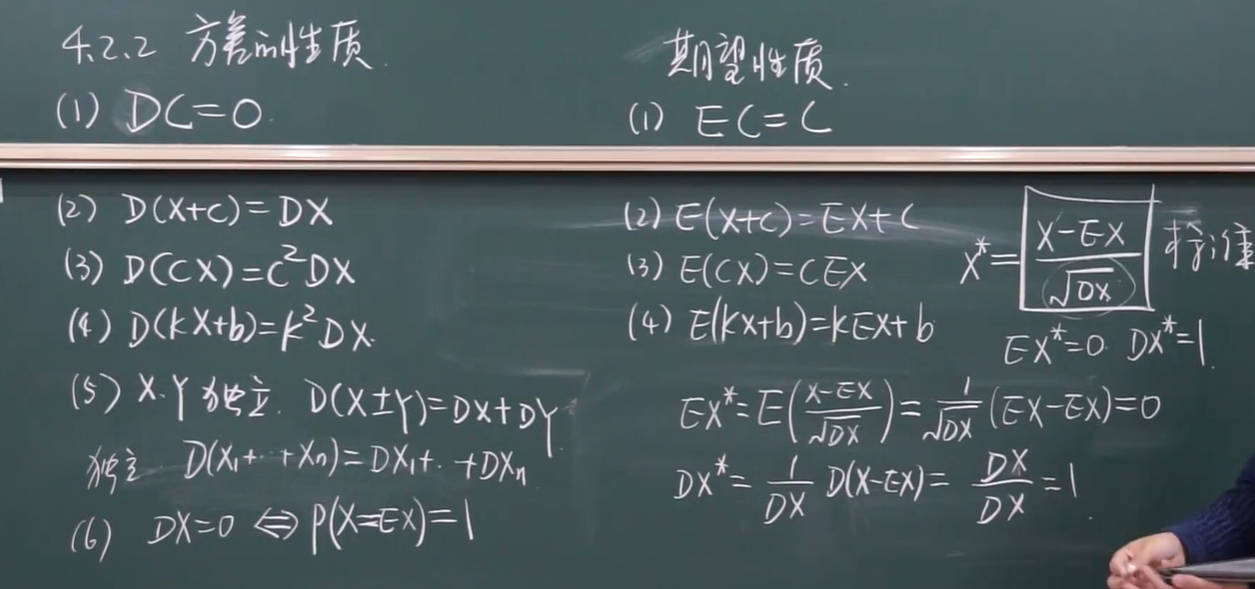 4.2.2 方差的性质
(1) DC=0.
(2) D(X+C)=DX
(3) D(CX)=C²DX
(4) D(kX+b)=k²DX.
(5) X.Y独立. D(X±Y)=DX+DY.
独立 D(X₁+··+Xₙ)=DX₁+··+DXₙ
(6) DX=0 ⇔ P(X=EX)=1
期望性质.
(1) EC=C
(2) E(X+C)=EX+C
(3) E(CX)=CEX
(4) E(kX+b)=kEX+b
X*=(X-EX)/√DX 标准
EX*=0. DX*=1.
EX*=E((X-EX)/√DX)=1/√DX (EX-EX)=0
DX*=1/DX D(X-EX)=DX/DX=1